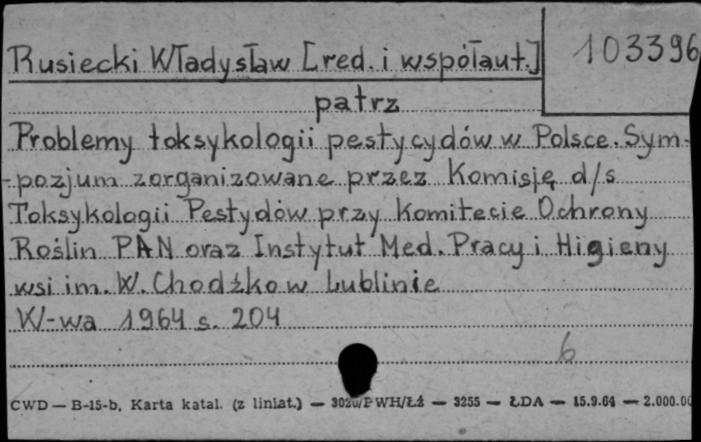 Rusiecki Władysław [red. i współaut.]
103396
patrz
Problemy toksykologii pestycydów w Polsce. Sym-
-pozjum zorganizowane przez Komisję d/s
Toksykologii Pestydów przy Komitecie Ochrony
Roślin PAN oraz Instytut Med. Pracy i Higieny
wsi im. W. Chodźko w Lublinie
W-wa 1964 s. 204
6
CWD — B-15-b, Karta katal. (z liniat.) — PWH/Łź — 3255 — ŁDA — 15.9.64 —